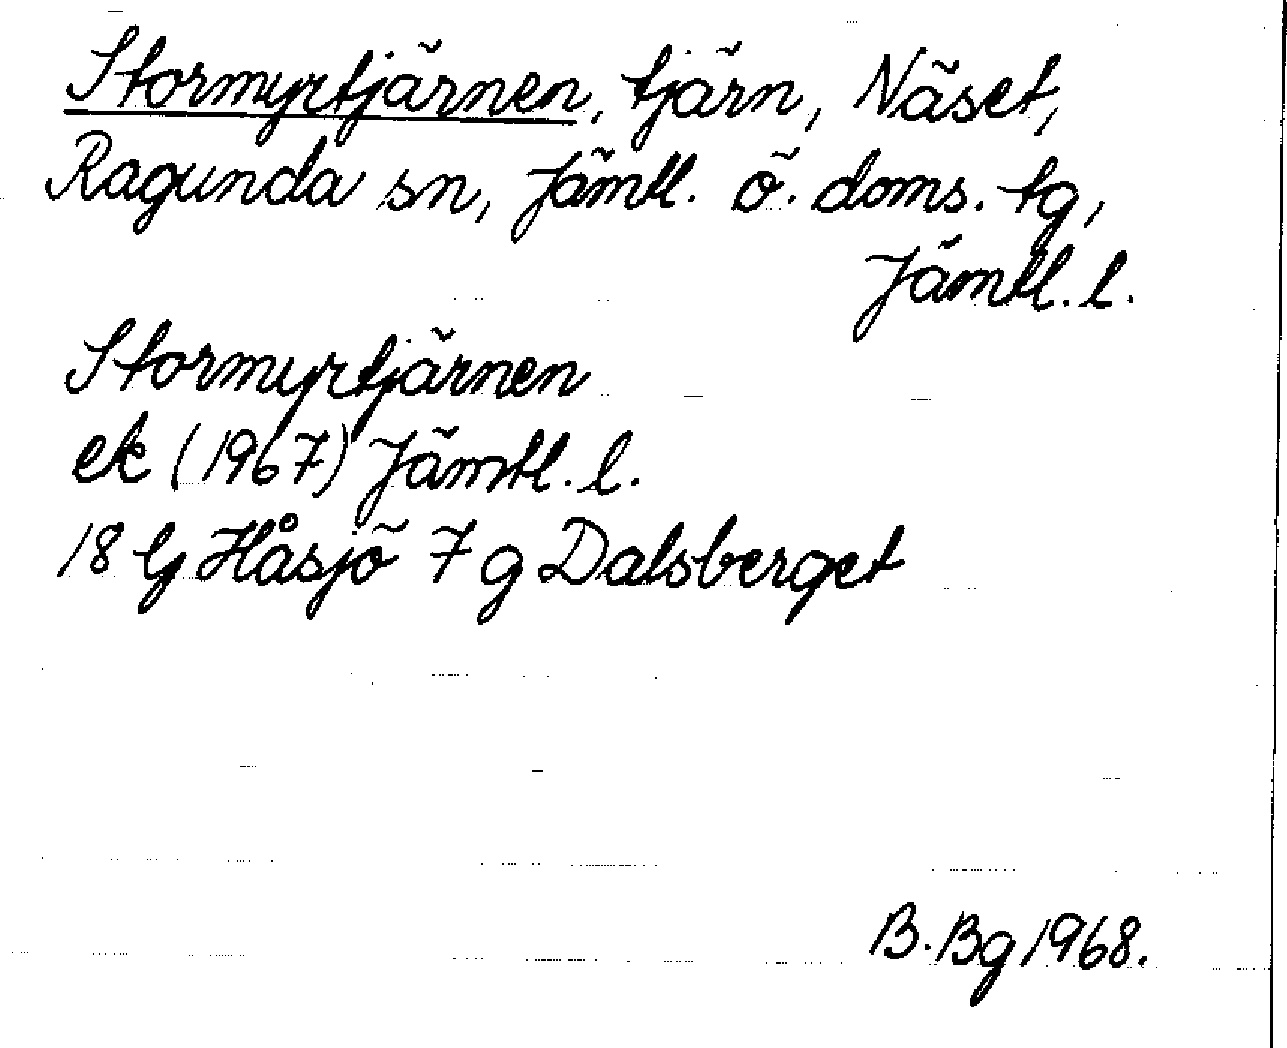 Stormyrtjärnen, tjärn, Näset,
Ragunda sn, Jämtl. ö. doms. tg,
Jämtl. l.
Stormyrtjärnen
ek (1967) Jämtl. l.
18 G Håsjö 7 g Dalsberget
B. Bg 1968.